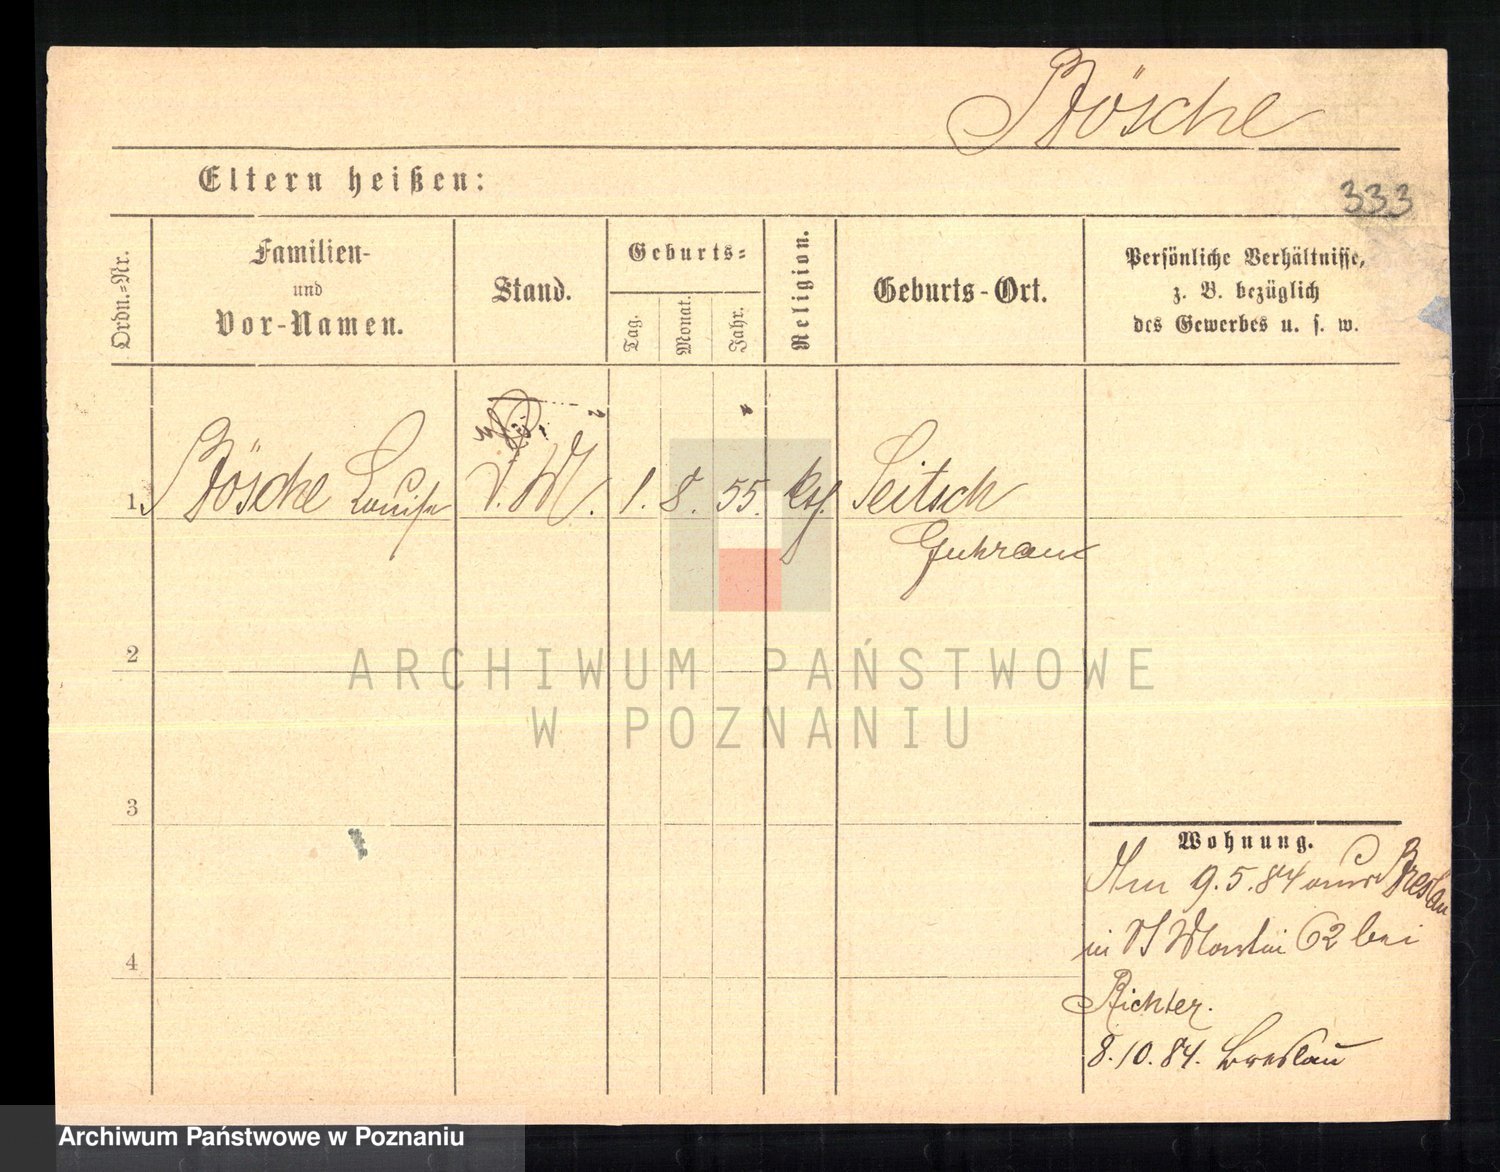 Bösche
Eltern heißen:
333
Ordn.-Nr.
Familien-
und
Vor-Namen.
Stand.
Geburts-
Tag.
Monat.
Jahr.
Religion.
Geburts-Ort.
Persönliche Verhältnisse,
z. B. bezüglich
des Gewerbes u. s. w.
1. Bösche Louise
1. 8. 55. Kth. Seitsch
Guhrau
2
3
4
Wohnung.
Am 9.5.84 aus Breslau
in St Martin 62 bei
Richter.
8.10.84. Breslau
ARCHIWUM PAŃSTWOWE
W POZNANIU
Archiwum Państwowe w Poznaniu